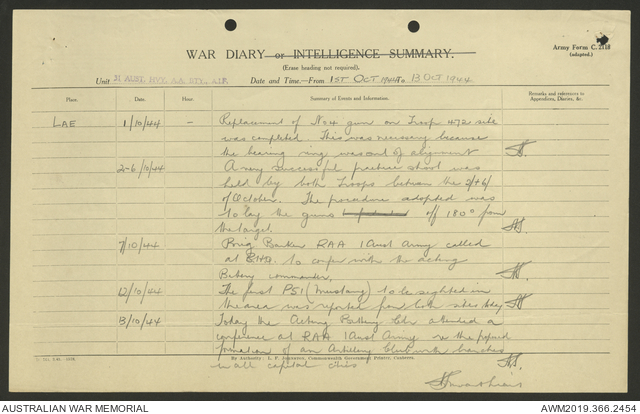 Army Form C. 2118
(adapted.)
WAR DIARY or INTELLIGENCE SUMMARY.
(Erase heading not required).
Unit 31 AUST. HVY. A.A. BTY. A.I.F. Date and Time—From 1ST OCT 1944 To 13 OCT 1944
Place. Date. Hour. Summary of Events and Information. Remarks and references to Appendices, Diaries, &c.
LAE 1/10/44 - Replacement of No4 gun on Troop 472 site
was completed. This was necessary because
the bearing ring was out of alignment
2-6/10/44 A very successful practice shoot was
held by both Troops between the 2/+6/
of October. The procedure adopted was
to lay the guns off 180° from
the target.
7/10/44 Brig Barker RAA 1 Aust Army called
at BHQ. to confer with the acting
Battery commander.
12/10/44 The first P51 (Mustang) to be sighted in
the area was reported from both sites today
13/10/44 Today the Acting Battery Cdr attended a
conference at RAA 1 Aust Army re the proposed
formation of an Artillery Club with branches
in all capital cities
By Authority: L. F. Johnston, Commonwealth Government Printer, Canberra.
AUSTRALIAN WAR MEMORIAL
AWM2019.366.2454